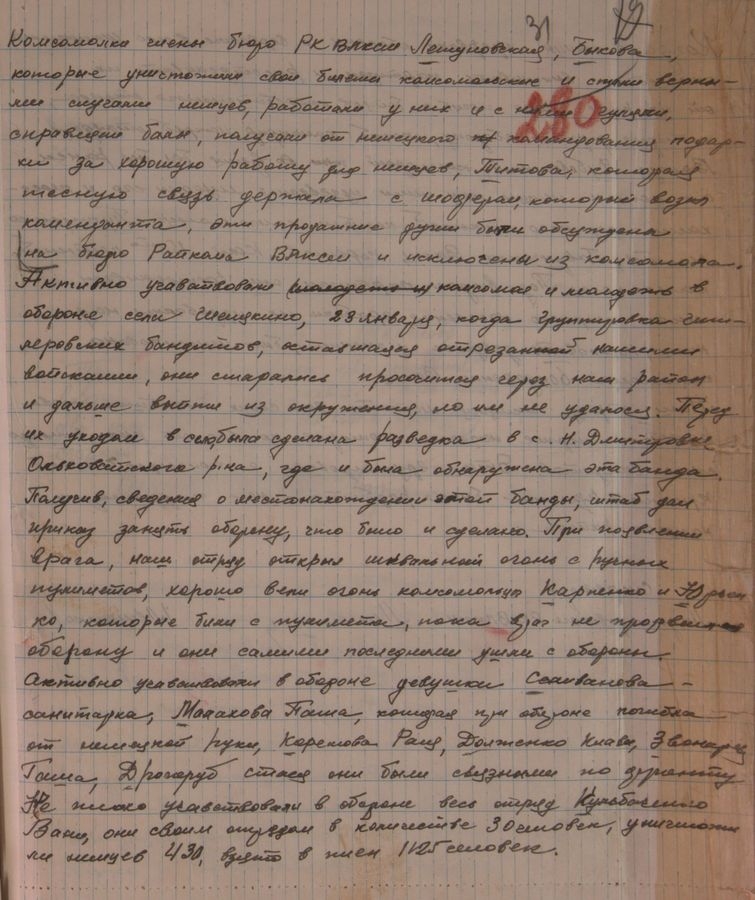 31
280
Комсомолки члены бюро РК ВЛКСМ Летуновская, Быкова,
которые уничтожили свои билеты комсомольские и стали верны-
ми слугами немцев, работали у них и с ними
справляли балы, получали от немецкого командования подар-
ки за хорошую работу для немцев, Титова, которая
тесную связь держала с шофером, который возил
коменданта, эти продажние души были обсуждены
на бюро Райкома ВЛКСМ и исключены из комсомола.
Активно учавствовали комсомол и молодежь в
обороне села Шевякино, 23 января, когда группировка гит-
леровских бандитов, оставшаяся отрезанной нашими
войсками, они старались просочится через наш район
и дальше выйти из окружения, но им не удалося. Перед
их уходом была сделана разведка в с. Н. Дмитровка
Ольховатского р-на, где и была обнаружена эта банда.
Получив, сведения о местонахождении этой банды, штаб дал
приказ занять оборону, что было и сделано. При появлении
врага, наш отряд открыл шквальной огонь с ручных
пулиметов, хорошо вели огонь комсомольцы Карпенко и
ко, которые били с пулимета, пока враг не прорвал
оборону и они самими последними ушли с обороны.
Активно учавствовали в обороне девушки Селиванова –
санитарка, Малахова Паша, которая при обороне погибла
от немецкой руки, Каретова Рая, Долженко Клава,
Гаша, Дрогоруб Стася они были связными по
Не плохо учавствовали в обороне весь отряд
Васи, они своим отрядом в количестве 30 человек, уничтожи
ли немцев 430, взято в плен 1125 человек.